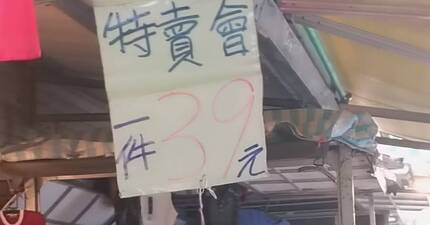 特賣會
一件39元